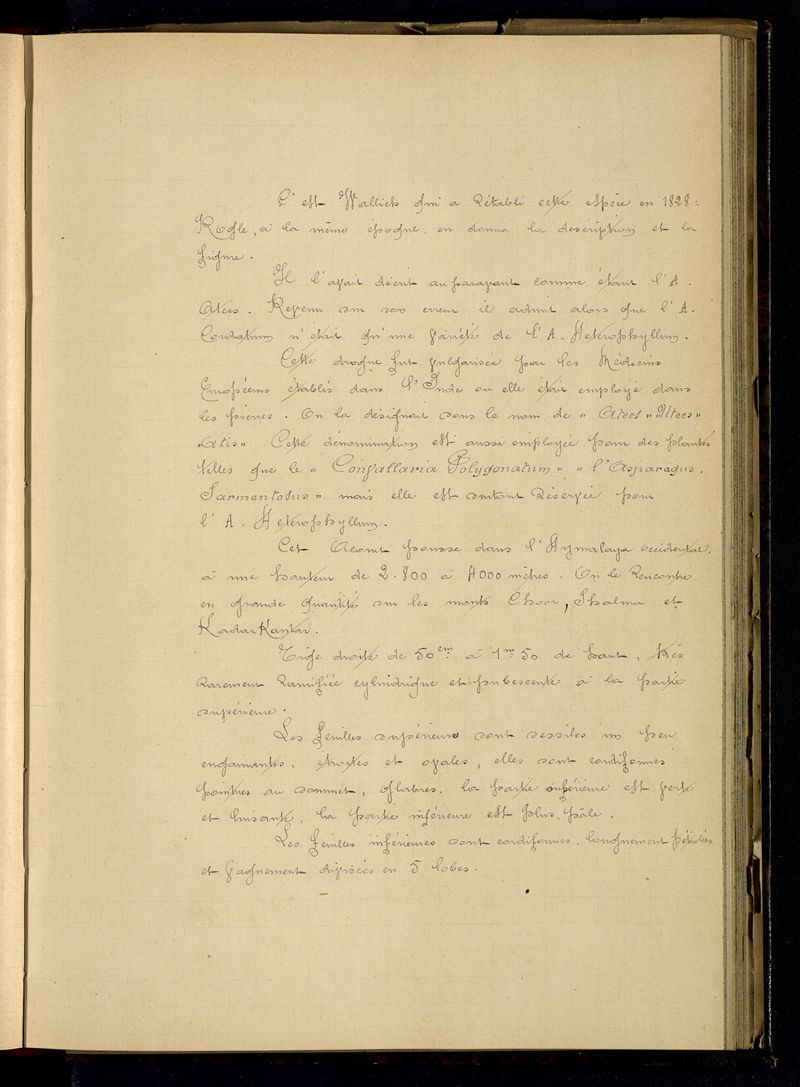 C'est Wallich qui a Rétabli cette espèce en 1828 :
Royle, à la même époque, en donna la description et la
figure.
Il l'avait décrit auparavant comme étant l'A.
Atees. Revenu sur son erreur il admit alors que l'A.
Cordatum n'était qu'une variété de l'A. Hétérophyllum.
Cette drogue fut vulgarisée par les Médecins
Européens établis dans l'Inde ou elle était employé dans
les fièvres. On la désignait sous le nom de « Atees » « Utees »
« Atis » Cette dénomination est aussi employée pour des plantes
telles que le « Convallaria Polygonatum », « l'Asparagus,
Sarmentosus » mais elle est surtout Réservée pour
l'A. Hétérophyllum.
Cet Aconit pousse dans l'Hymalaya occidental,
à une hauteur de 2.800 à 4000 mètres. On le Rencontre
en grande quantité sur les monts Choor, Shalma et
Kadarkantar.
Tige droite de 50cm à 1m50 de haut, très
Rarement Ramifiée cylindrique et pubescente à la partie
supérieure.
Les feuilles supérieures sont sessiles un peu
engainantes, étroites et ovales, elles sont cordiformes
pointues au sommet, glabres, la partie supérieure est verte
et luisante, la partie inférieure est plus pâle.
Les feuilles inférieures sont cordiformes, longuement pétiolées
et vaguement divisées en 5 lobes.